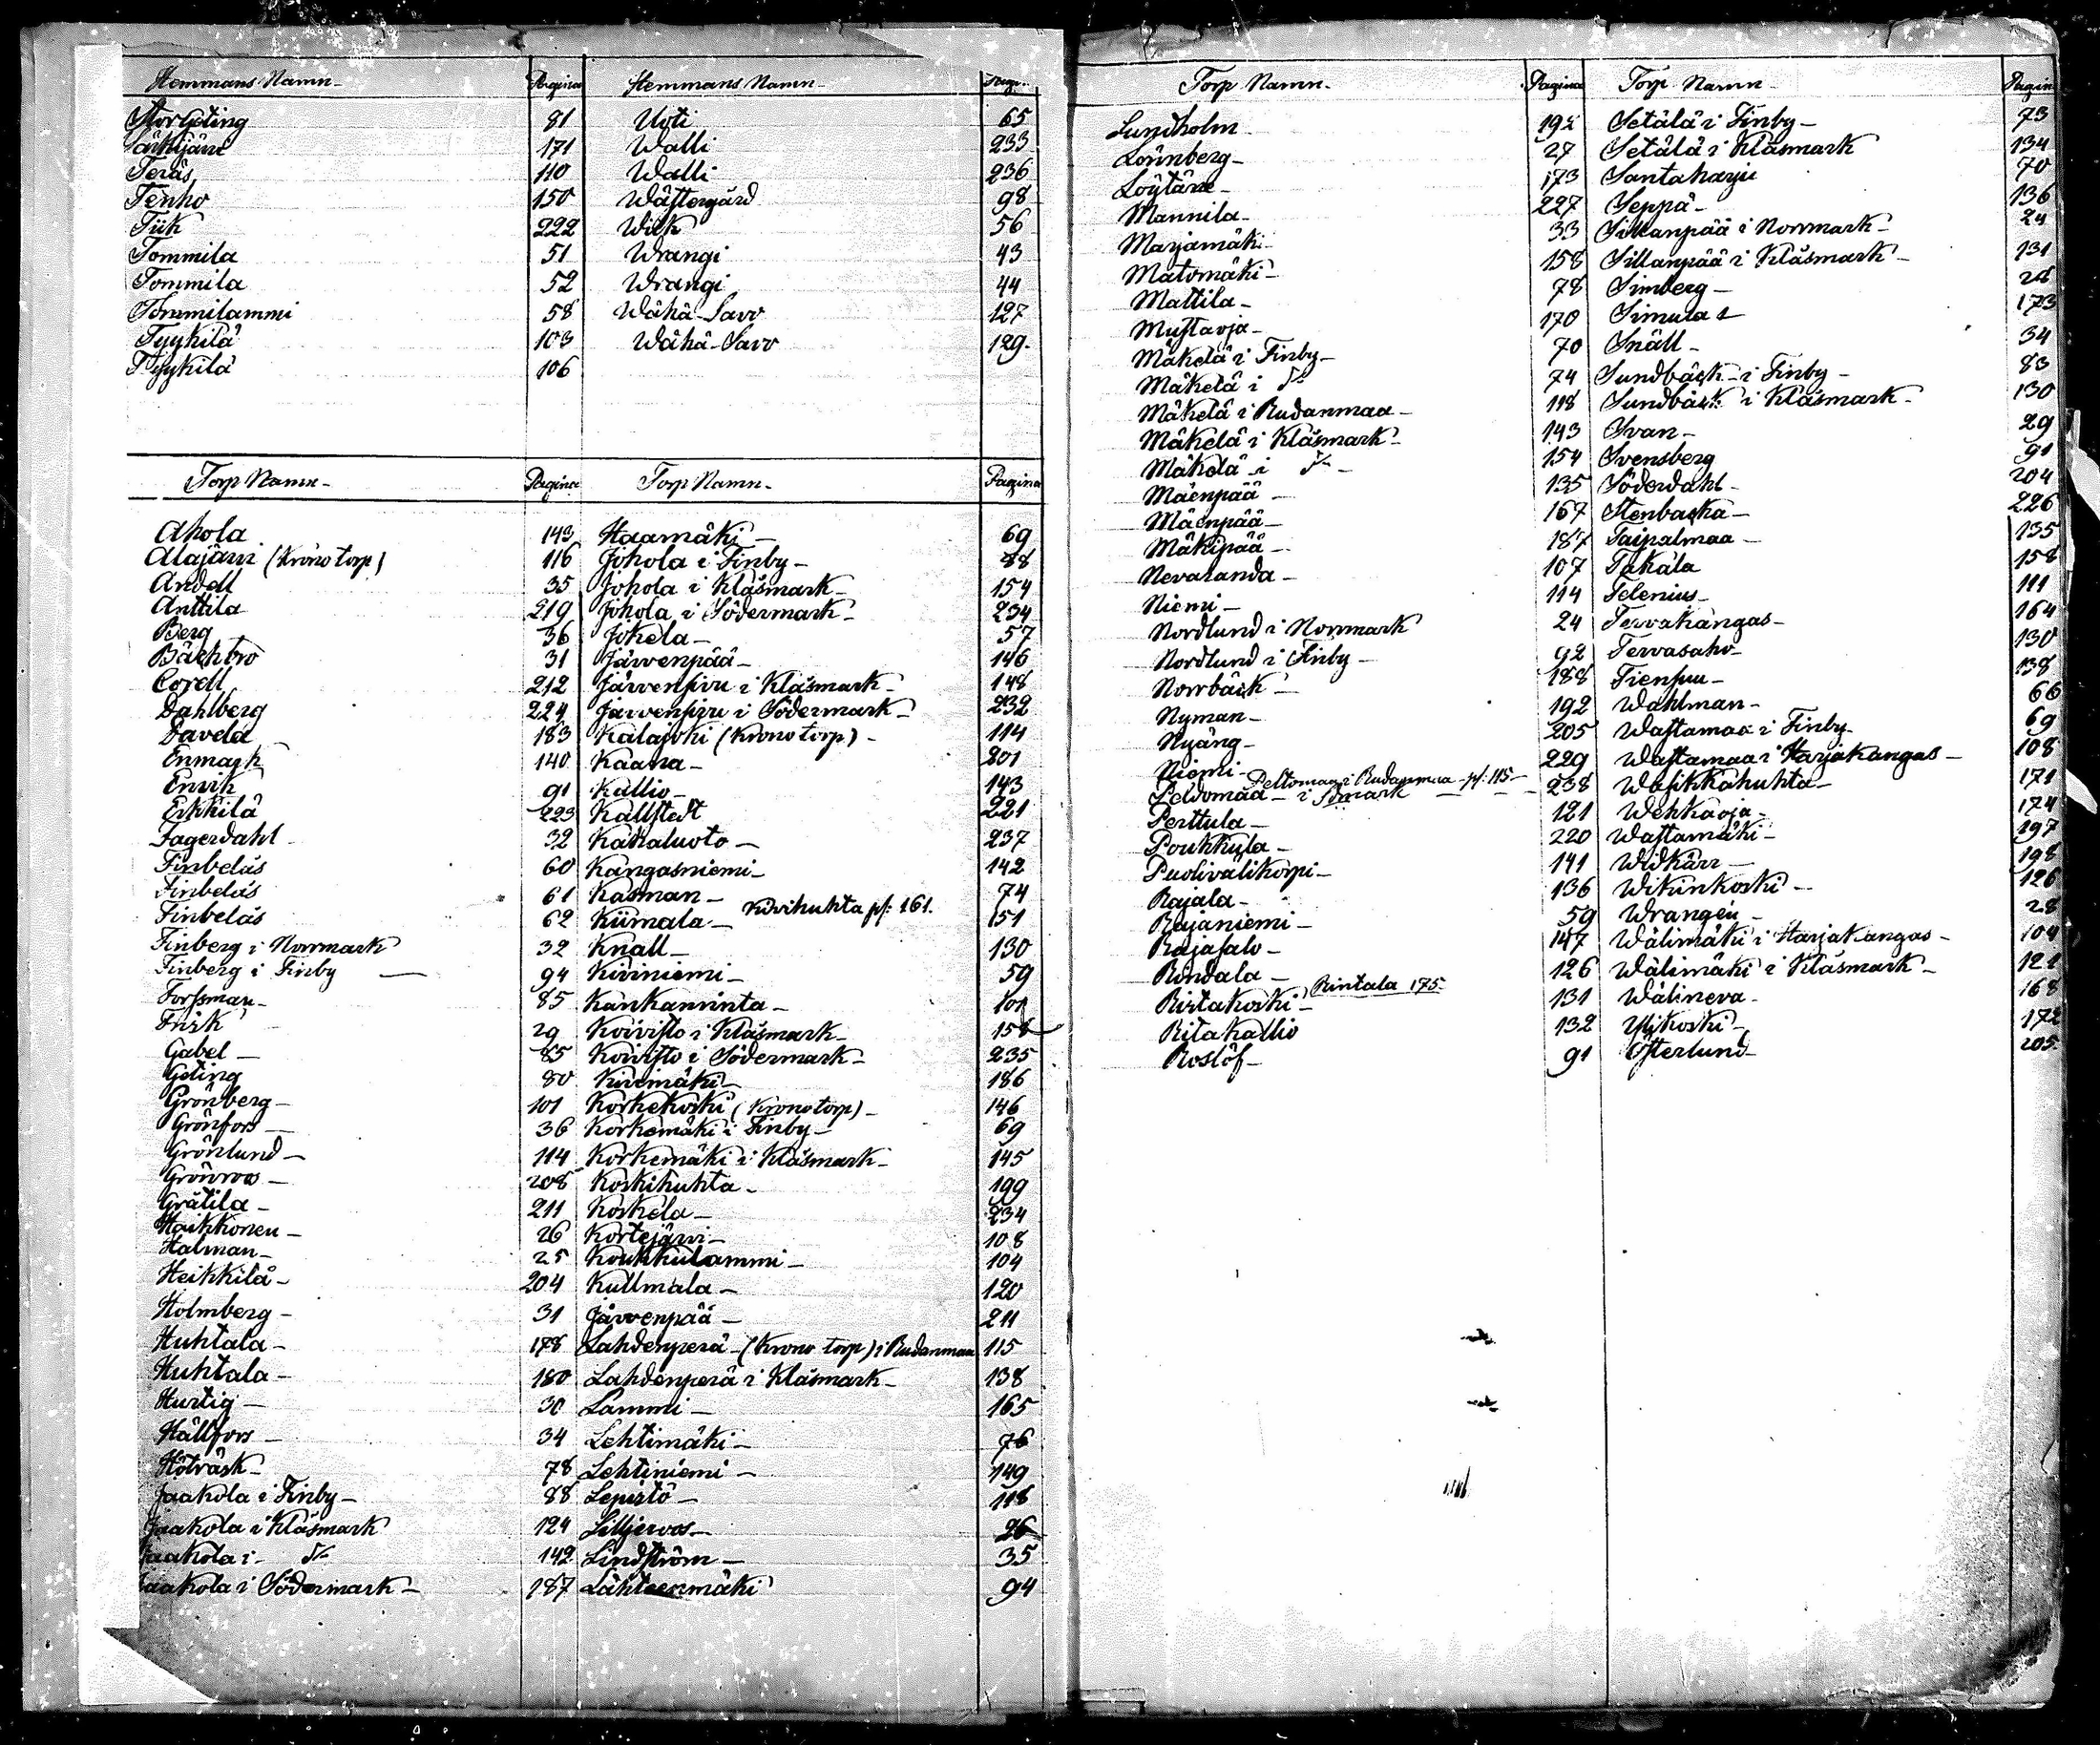 Hemmans Namn - Pagina
Storgåting 81
Särkijärvi 171
Teräs 110
Tenho 150
Tiik 222
Tommila 51
Tommila 52
Tommilammi 58
Tyykilä 103
Tyykilä 106
Hemmans Namn -
Uoti 65
Walli 233
Walli 236
Wästergård 98
Wiik 56
Wrangi 43
Wrangi 44
Wähä-Savo 127
Wähä-Savo 129
Torp Namn - Pagina
Ahola 143
Alajärvi (Krono torp) 116
Andell 35
Anttila 219
Berg 36
Bäckbro 31
Corell 212
Dahlberg 224
Davela 183
Enmark 140
Envik 91
Erkkilä 223
Fagerdahl 32
Finbeläs 60
Finbeläs 61
Finbeläs 62
Finberg i Norrmark 32
Finberg i Finby — 94
Forssman - 85
Frisk 29
Gabel - 85
Geting 80
Grönberg - 101
Grönfors 36
Grönlund - 114
Grönroos - 208
Grätila - 211
Haikkonen - 26
Halman - 25
Heikkilä - 204
Holmberg - 31
Huhtala - 178
Huhtala - 180
Hurtig - 30
Hällfors - 34
Höträsk - 78
Jaakola i Finby - 88
Jaakola i Klåsmark 124
Jaakola i d:o 142
Jaakola i Södermark - 187
Torp Namn - Pagina
Haamäki - 69
Johola i Finby - 88
Johola i Klåsmark - 154
Johola i Södermark - 234
Jokela - 57
Järvenpää - 146
Järvensivu i Klåsmark - 148
Järvensivu i Södermark - 232
Kalajoki (Krono torp) - 114
Kaana - 201
Kallio - 143
Källstedt 221
Kakaluoto - 237
Kangasniemi - 142
Kasman - 74
Kivihuhta p: 161.
Kiimala - 151
Knall - 130
Kiviniemi - 59
Kankaanrinta - 101
Koivisto i Klåsmark - 158
Koivisto i Södermark - 235
Kivimäki - 186
Korkekoski (Krono torp) - 146
Korkemäki i Finby - 69
Korkemäki i Klåsmark - 145
Koskihuhta - 199
Koskela - 234
Kortejärvi - 108
Koukkulammi - 104
Kullmala - 120
Järvenpää - 211
Lahdenperä - (Krono torp) i Rudanmaa 115
Lahdenperä i Klåsmark - 138
Lammi - 165
Lehtimäki - 76
Lehtiniemi - 149
Lepistö - 118
Liljeroos - 26
Lindström - 35
Lähteenmäki 94
Torp Namn - Pagina
Lundholm 192
Lönnberg - 27
Löytäne - 173
Mannila - 227
Marjamäki 33
Matomäki - 158
Mattila - 78
Mustaoja - 170
Mäkelä i Finby - 70
Mäkelä i d:o 74
Mäkelä i Rudanmaa - 118
Mäkelä i Klåsmark - 143
Mäkelä i d:o - 154
Mäenpää - 135
Mäenpää - 167
Mäkipää - 187
Nevaranda - 107
Niemi - 114
Nordlund i Norrmark 24
Nordlund i Finby - 92
Norrbäck - 188
Nyman - 192
Nyäng - 205
Niemi - 229
Peltomaa i Rudanmaa - p: 115 -
Peldomaa - i Smark - 238
Perttula - 121
Poukkula - 220
Puolivälikorpi - 141
Rajala - 136
Rajaniemi - 59
Rajasalo - 147
Rindala - 126
Rintala 175
Ristakoski - 131
Ritakallio 132
Roslöf - 91
Torp Namn - Pagina
Setälä i Finby - 73
Setälä i Klåsmark 134
Santaharju 70
Seppä - 136
Sillanpää i Norrmark - 24
Sillanpää i Klåsmark - 131
Simberg - 28
Simula 173
Snäll - 34
Sundbäck - i Finby - 83
Sundbäck i Klåsmark - 130
Svan - 29
Svensberg 91
Söderdahl - 204
Stenbacka - 226
Taipalmaa - 135
Takala 158
Telenius - 111
Tervakangas - 164
Tervasaho - 130
Tiensuu - 138
Wahlman - 66
Wastamaa i Finby - 69
Wastamaa i Harjakangas - 108
Wasikkahuhta - 171
Wehkaoja - 174
Wastamäki - 197
Widkärr - 198
Wikinkoski - 126
Wrangen - 28
Wälimäki i Harjakangas - 104
Wälimäki i Klåsmark - 121
Wälineva - 168
Ylikoski - 172
Österlund - 205